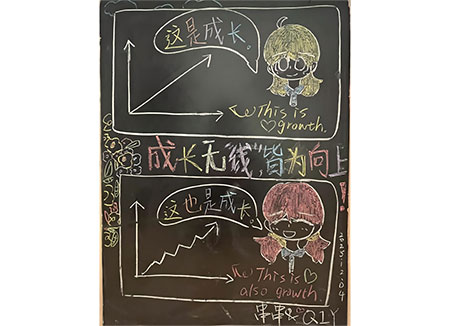 这是成长。
This is
growth.
成长无“线”，皆为向上！
这也是成长。
This is
also growth.
2025.12.04
串串&Q1Y